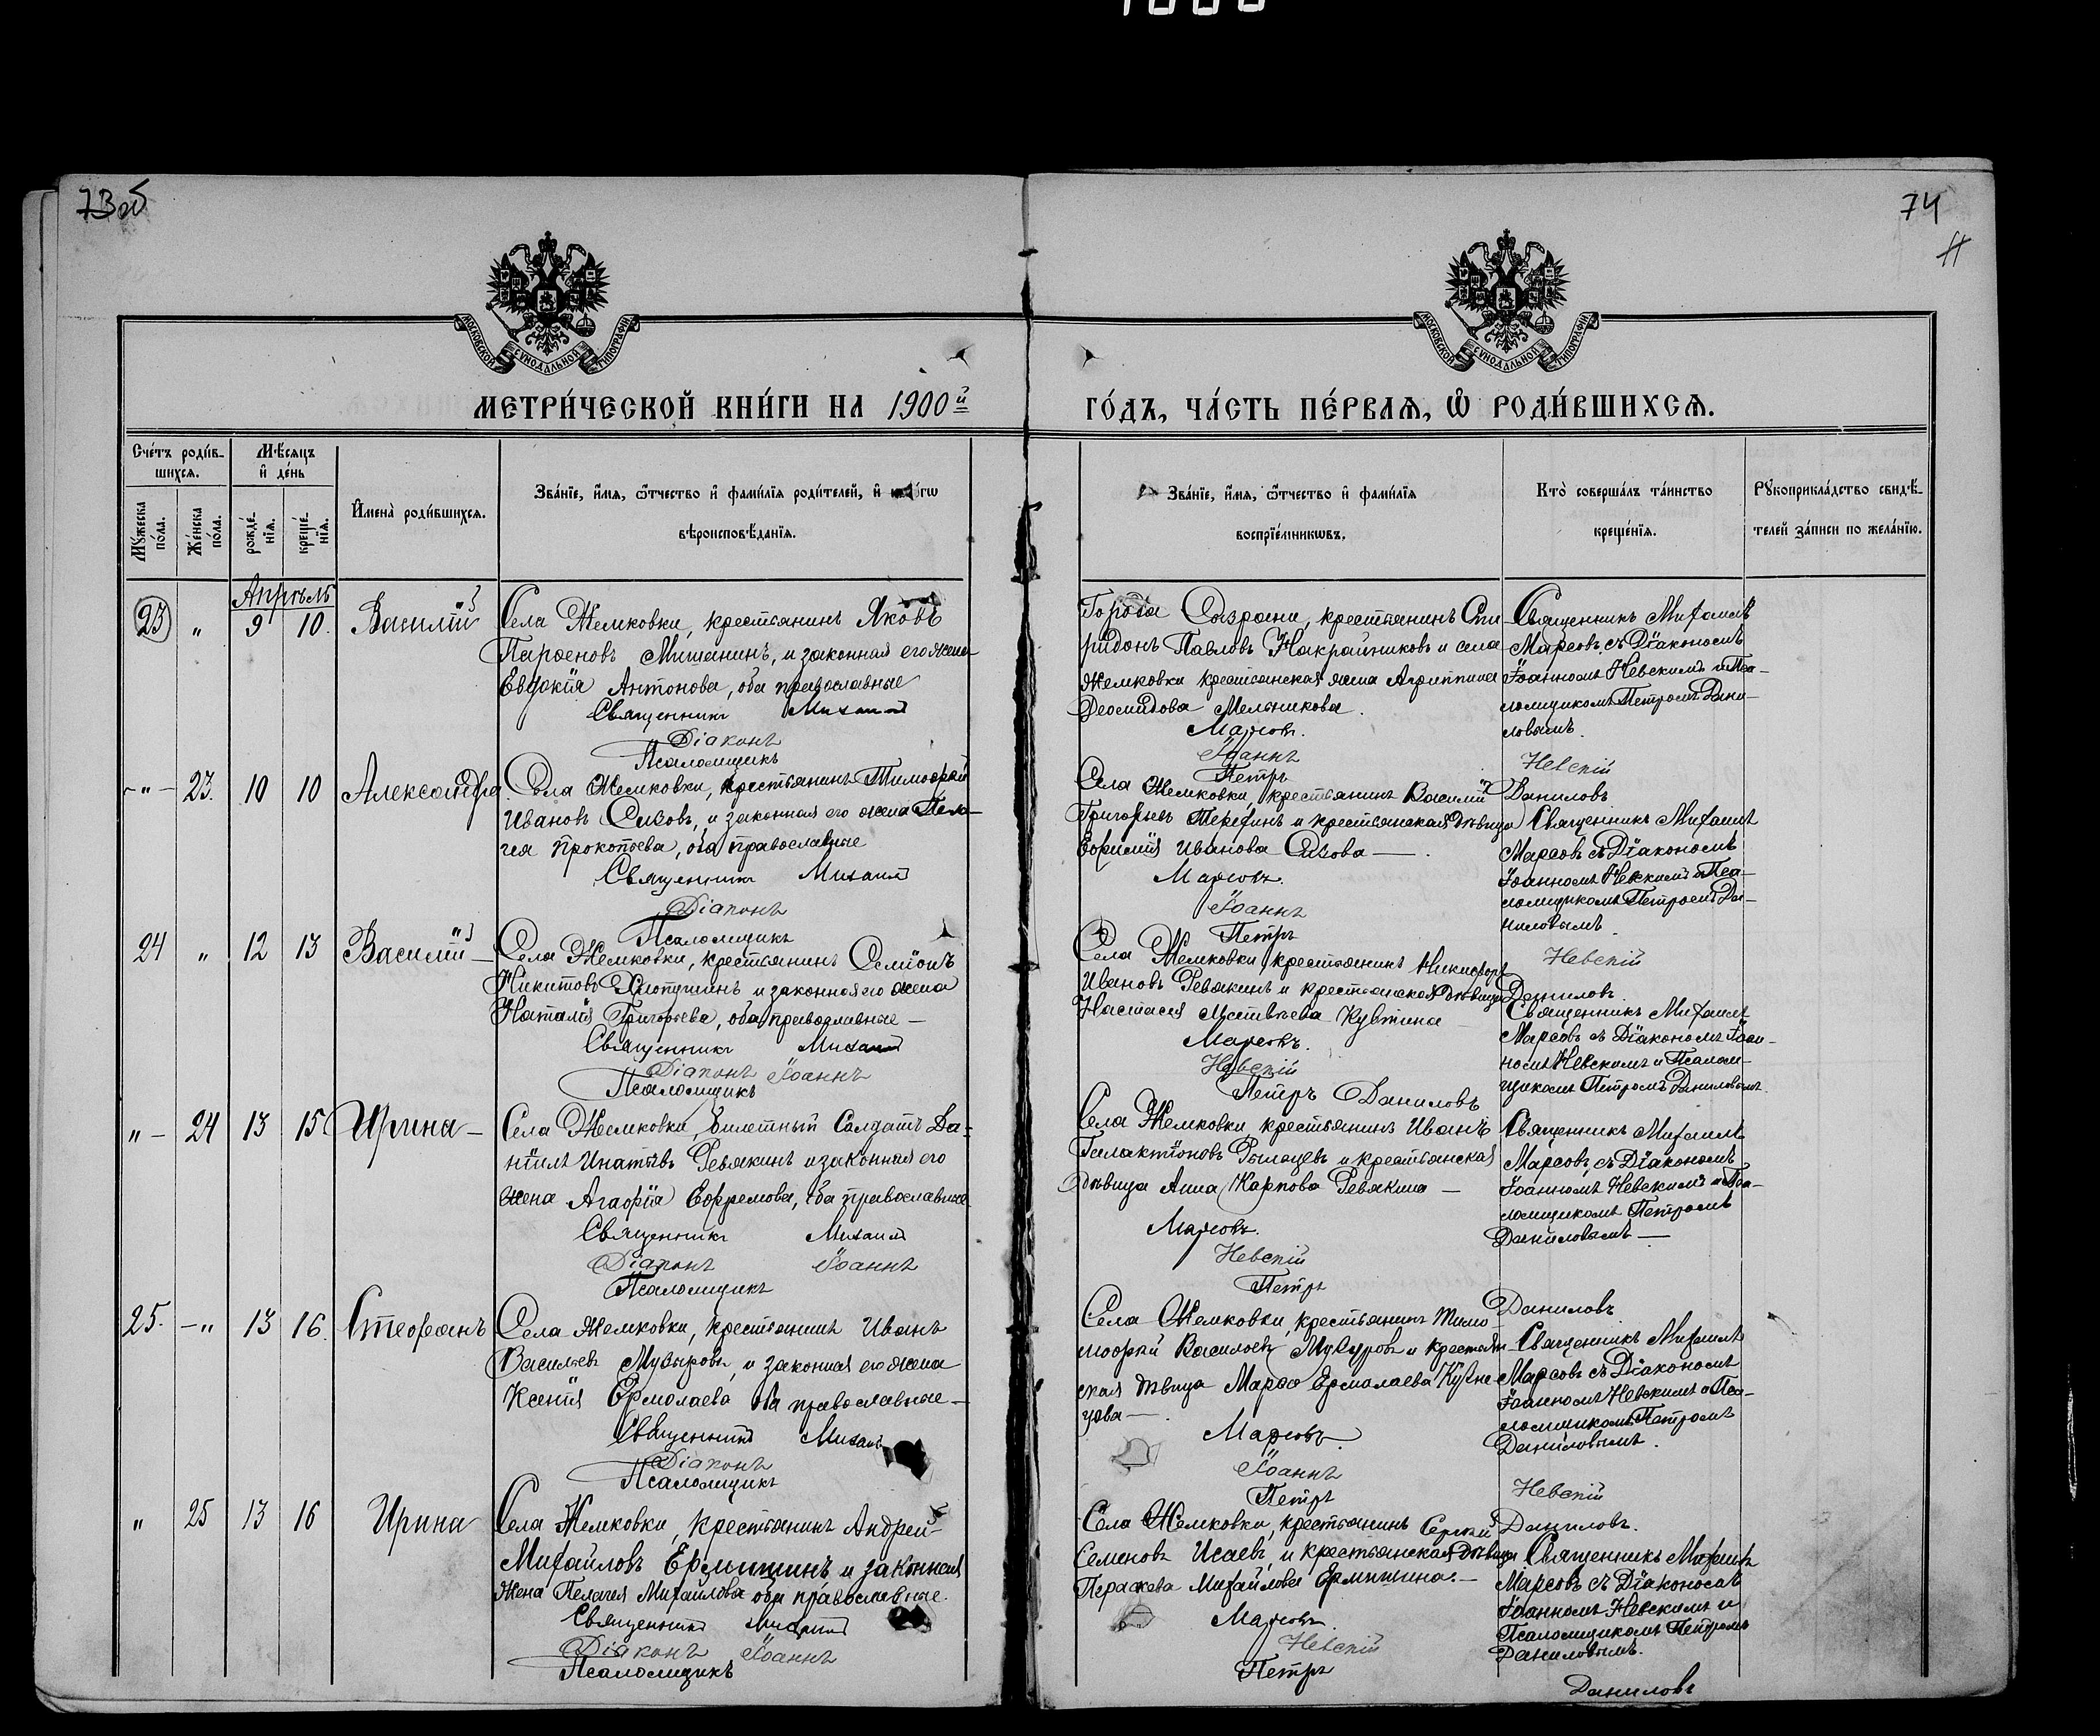 73 об
74
МОСКОВСКОЙ СУНОДАЛЬНОЙ ТИПОГРАФІИ
МОСКОВСКОЙ СУНОДАЛЬНОЙ ТИПОГРАФІИ
МЕТРИ́ЧЕСКОЙ КНИ́ГИ НА 1900й
ГО́ДЪ, ЧА́СТЬ ПЕ́РВАЯ, Ѡ РОДИ́ВШИХСЯ.
Счетъ родив-
шихся.
Мѣсяцъ
и день
Мужеска пола.
Женска пола.
рожденія.
крещенія.
Имена родившихся.
Званіе, имя, отчество и фамилія родителей, и
вѣроисповѣданія.
Званіе, имя, отчество и фамилія
воспріемниковъ.
Кто совершалъ таинство
крещенія.
Рукоприкладство свидѣ-
телей записи по желанію.
Апрѣль
23 " 9 10. Василій
Села Жемковки, крестьянинъ Яковъ
Парѳеновъ Мишанинъ, и законная его жена
Евдокія Антонова, оба православные
Священникъ Михаилъ
Діаконъ
Псаломщикъ
Города Сызрани, крестьянинъ Спи
ридонъ Павловъ Накрайниковъ и села
Жемковки крестьянская жена Агриппина
Деомидова Мельникова.
Марсовъ.
Іоаннъ
Петръ
Священникъ Михаилъ
Марсовъ съ Діакономъ
Іоанномъ Невскимъ и Пса-
ломщикомъ Петромъ Дани-
ловымъ.
Невскій
Даниловъ
" 23. 10 10 Александра
Села Жемковки, крестьянинъ Тимоѳей
Ивановъ Сизовъ, и законная его жена Пела-
гея Прокопьева, оба православные
Священникъ Михаилъ
Діаконъ
Псаломщикъ
Села Жемковки, крестьянинъ Василій
Григорьевъ и крестьянская дѣвица
Евфимія Иванова Сизова
Марсовъ.
Іоаннъ
Петръ
Священникъ Михаилъ
Марсовъ съ Діакономъ
Іоанномъ Невскимъ и Пса-
ломщикомъ Петромъ Да-
ниловымъ.
Невскій
Даниловъ.
24 " 12 13 Василій
Села Жемковки, крестьянинъ Семіонъ
Никитовъ и законная его жена
Наталія Григорьева, оба православные
Священникъ Михаилъ
Діаконъ Іоаннъ
Псаломщикъ
Села Жемковки, крестьянинъ Никифоръ
Ивановъ Ревякинъ и крестьянская дѣвица
Настасия
Марсовъ.
Невскій
Петръ Даниловъ
Священникъ Михаилъ
Марсовъ съ Діакономъ Іоан-
номъ Невскимъ и Псалом-
щикомъ Петромъ Даниловымъ
" 24 13 15 Ирина
Села Жемковки, билетный Солдатъ Да-
ніилъ Ревякинъ и законная его
жена Агафія Ефремова, оба православные
Священникъ Михаилъ
Діаконъ Іоаннъ
Псаломщикъ
Села Жемковки, крестьянинъ Иванъ
Галактіоновъ и крестьянская
дѣвица Анна Карпова Ревякина
Марсовъ.
Невскій
Петръ
Священникъ Михаилъ
Марсовъ, съ Діакономъ
Іоанномъ Невскимъ и Пса-
ломщикомъ Петромъ
Даниловымъ
Даниловъ
25. " 13 16. Стефанъ
Села Жемковки, крестьянинъ Иванъ
Васильевъ и законная его жена
Ксенія Ермолаева оба православные
Священникъ Михаилъ
Діаконъ
Псаломщикъ
Села Жемковки, крестьянинъ Тимо
Васильевъ и крестьян
ская дѣвица Марѳа Ермолаева Кузне
цова
Марсовъ.
Іоаннъ
Петръ
Священникъ Михаилъ
Марсовъ съ Діакономъ
Іоанномъ Невскимъ и Пса-
ломщикомъ Петромъ
Даниловымъ.
Невскій
Даниловъ.
" 25 13 16 Ирина
Села Жемковки, крестьянинъ Андрей
Михайловъ Ермишинъ и законная
жена Пелагея Михайлова оба православные.
Священникъ Михаилъ
Діаконъ Іоаннъ
Псаломщикъ
Села Жемковки, крестьянинъ Сергій
Семеновъ Исаевъ, и крестьянская дѣвица
Параскева Михайлова Ермишина.
Марсовъ
Невскій
Петръ
Священникъ Михаилъ
Марсовъ съ Діакономъ
Іоанномъ Невскимъ и
Псаломщикомъ Петромъ
Даниловымъ.
Даниловъ